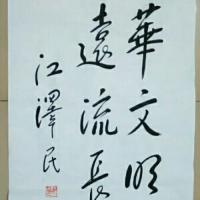 華文明
遠流長
江澤民